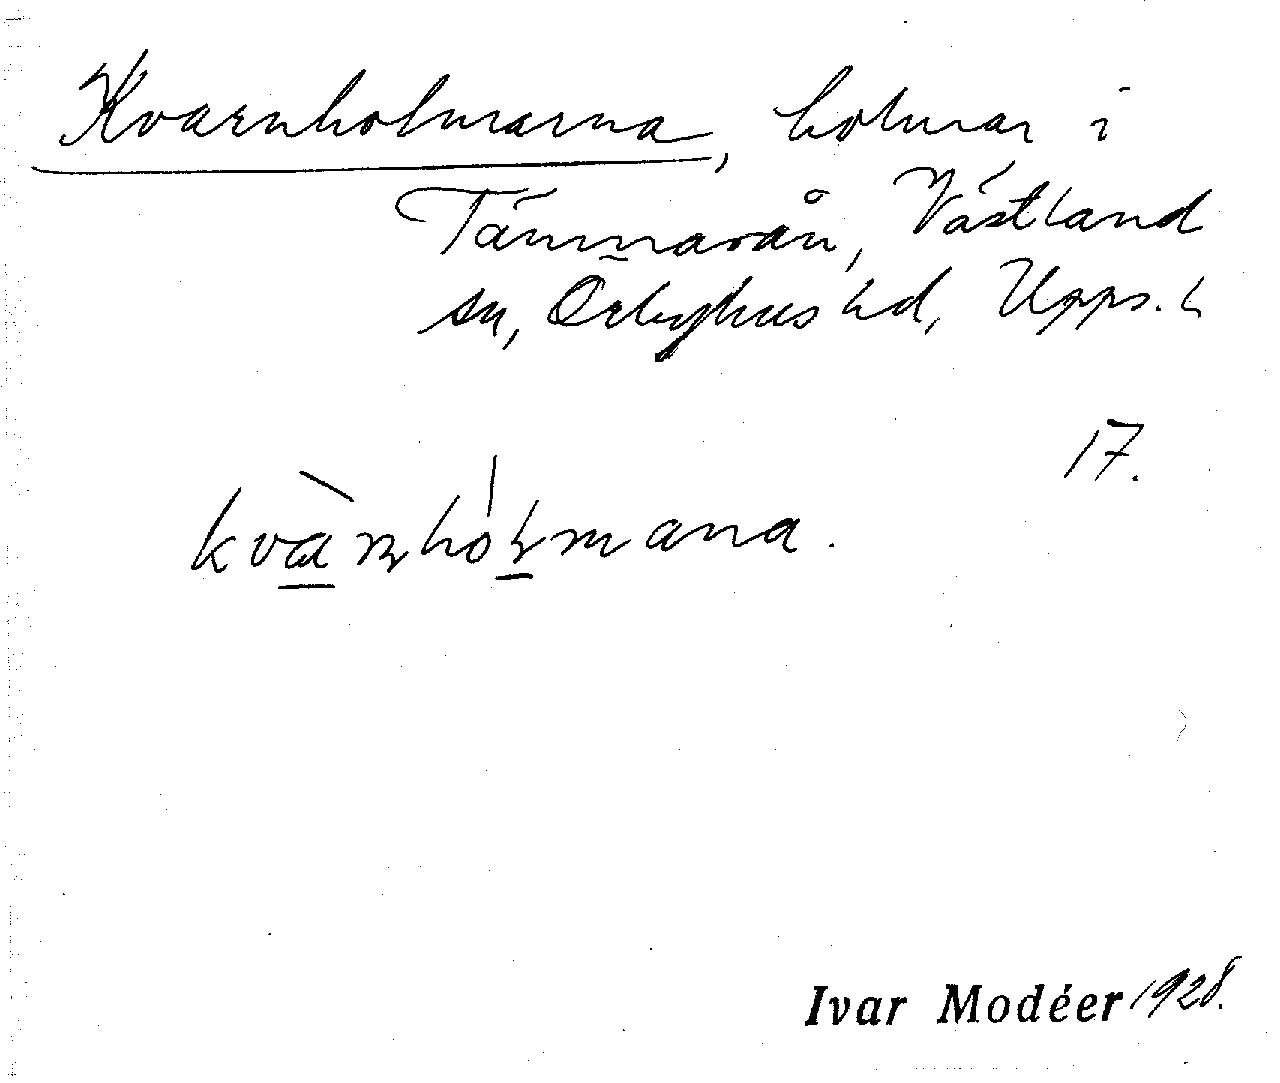 Kvarnholmarna, holmar i
Tämnarån, Västland
sn, Örbyhus hd, Upps. l
17.
kvànhólmana.
Ivar Modéer 1928.